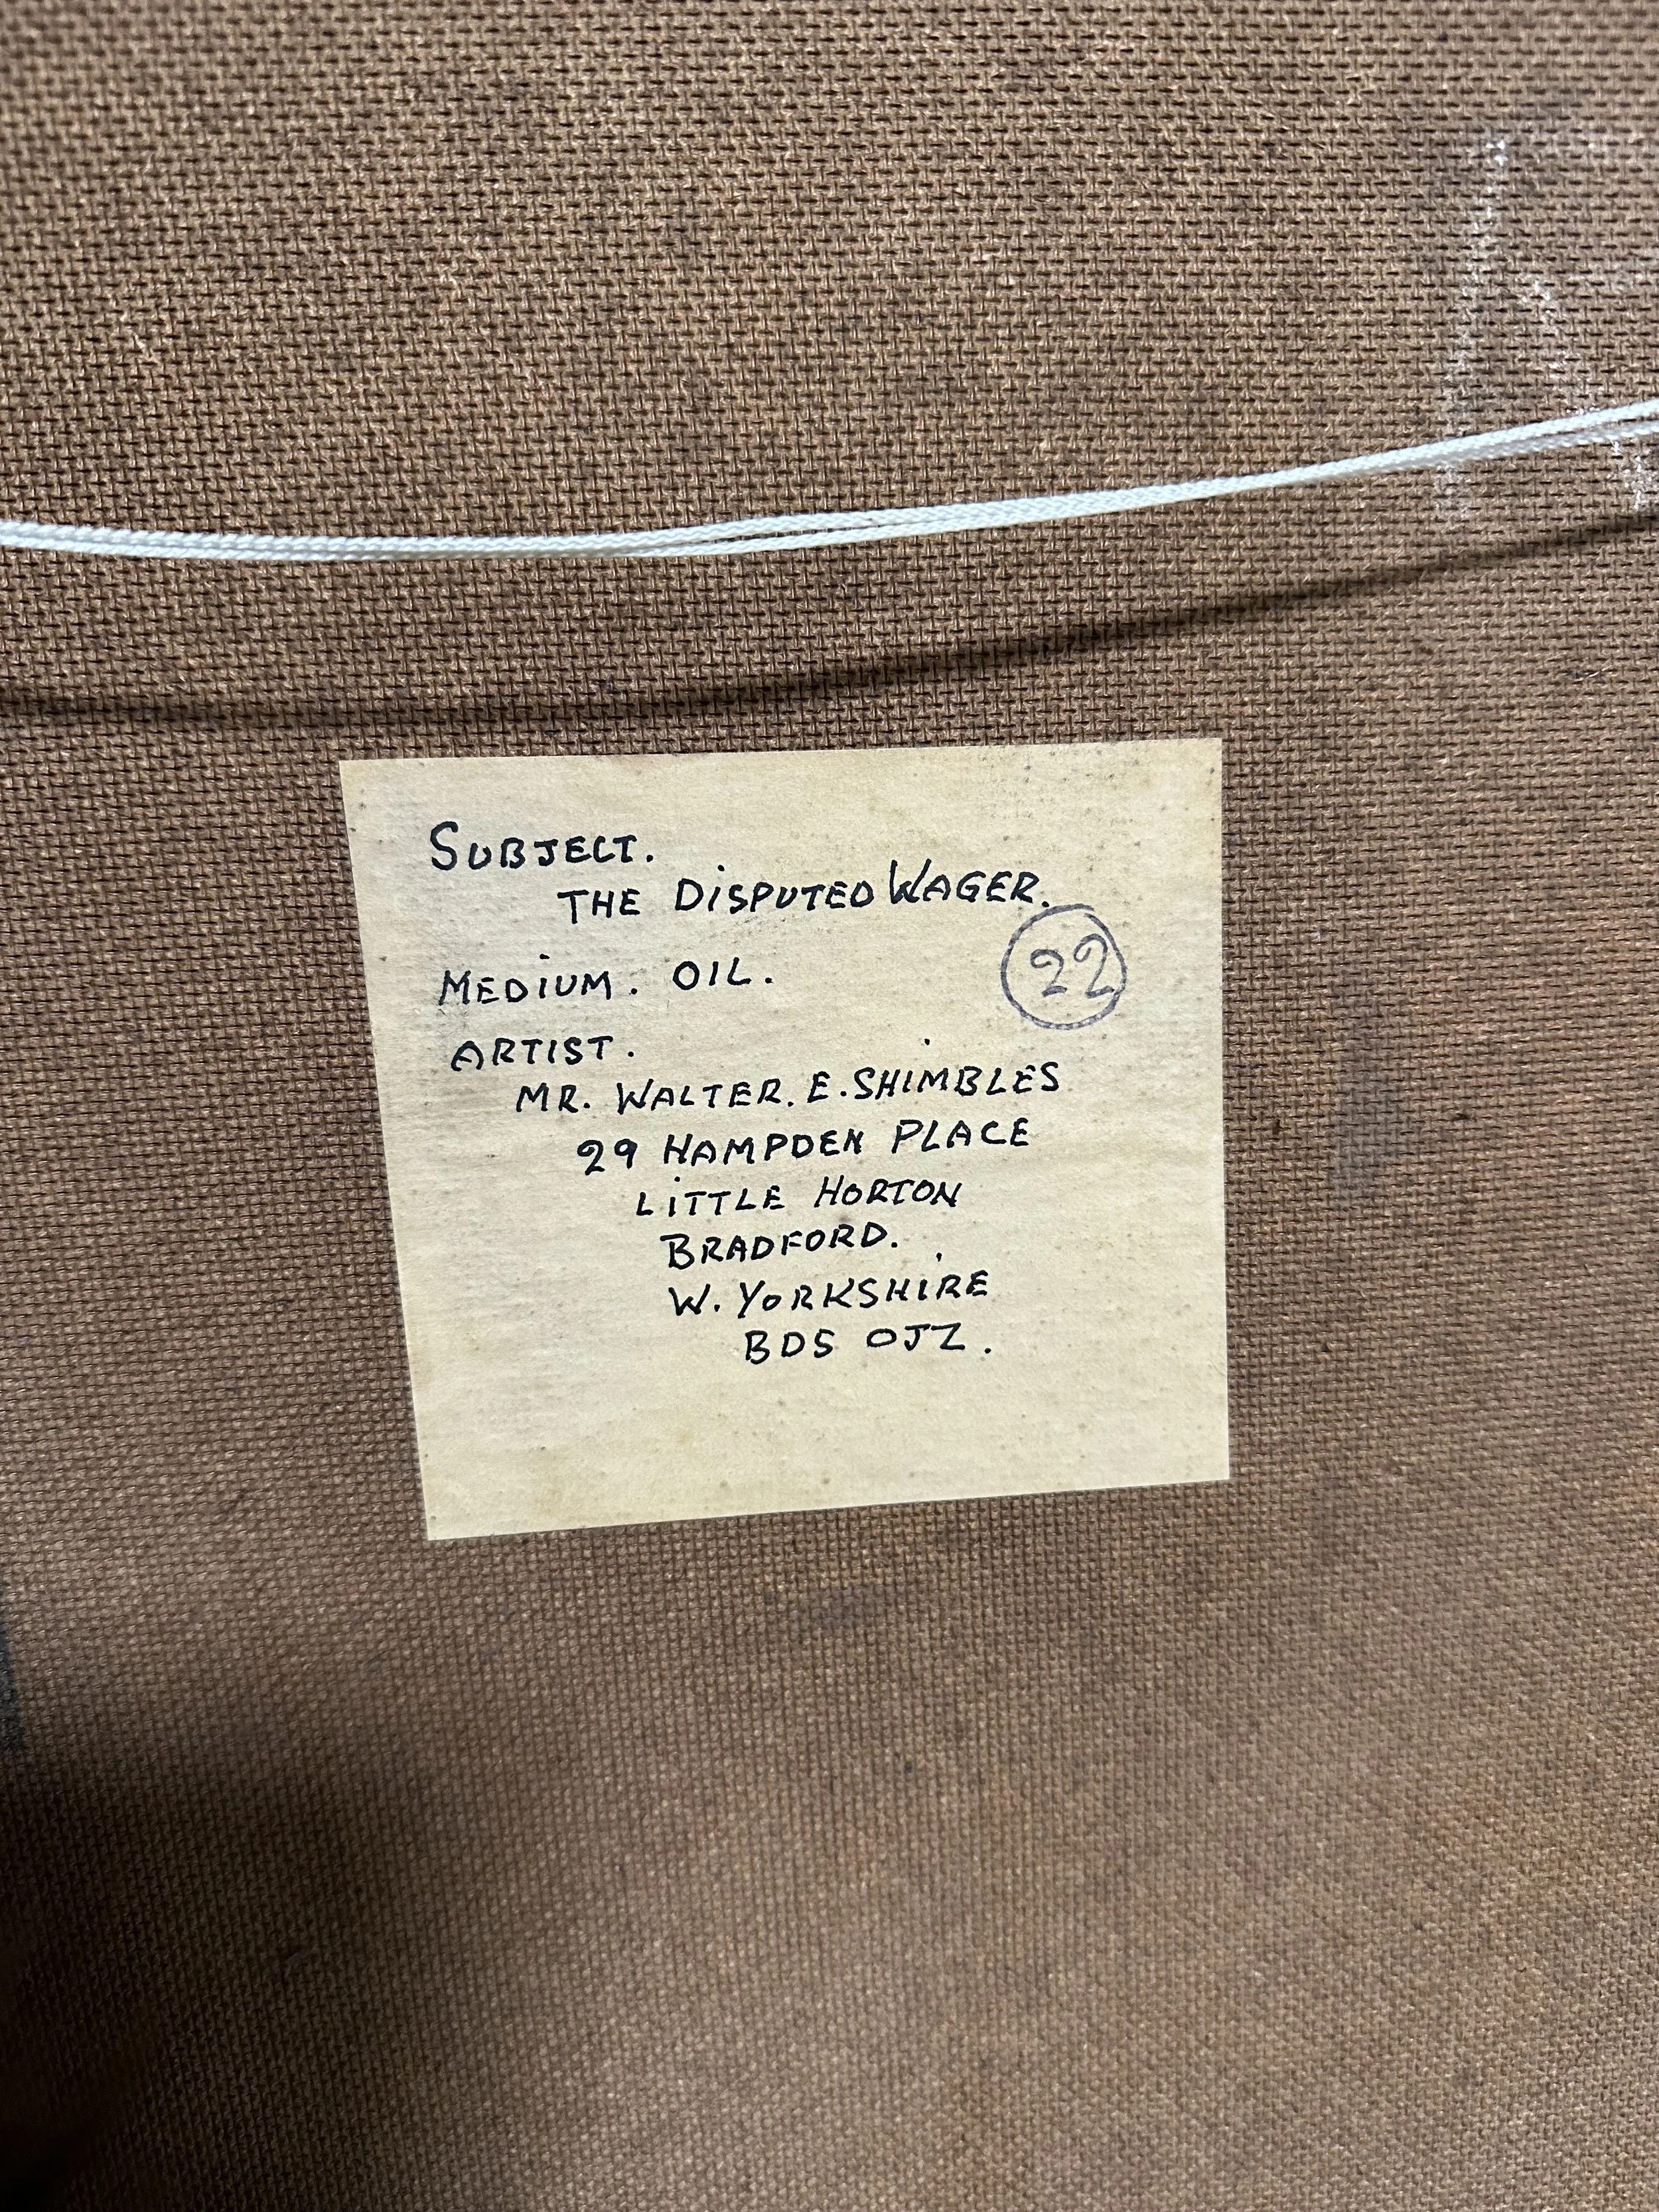 SUBJECT.
THE DISPUTED WAGER.
MEDIUM. OIL.
22
ARTIST.
MR. WALTER. E. SHIMBLES
29 HAMPDEN PLACE
LITTLE HORTON
BRADFORD.
W. YORKSHIRE
BD5 0JZ.